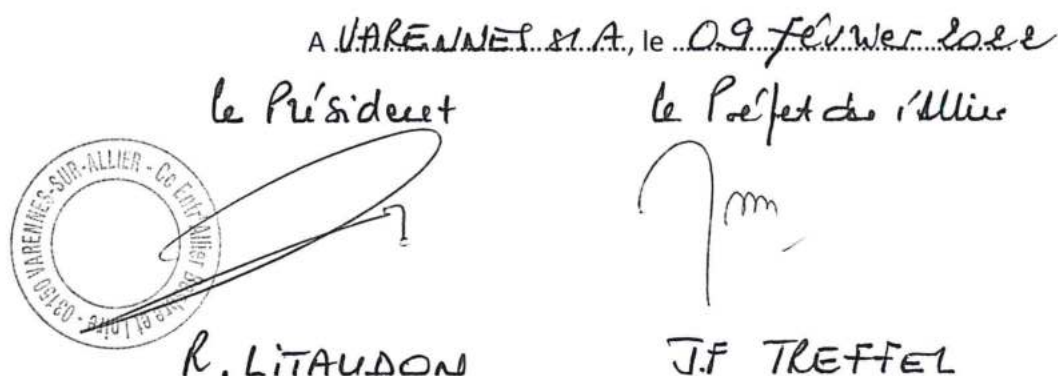 A VARENNES St A, le 09 février 2022
le Président
le Préfet de l'Allier
03150 VARENNES-SUR-ALLIER - Cc Entr'Allier Besbre et Loire -
R. LITAUDON
J.F TREFFEL